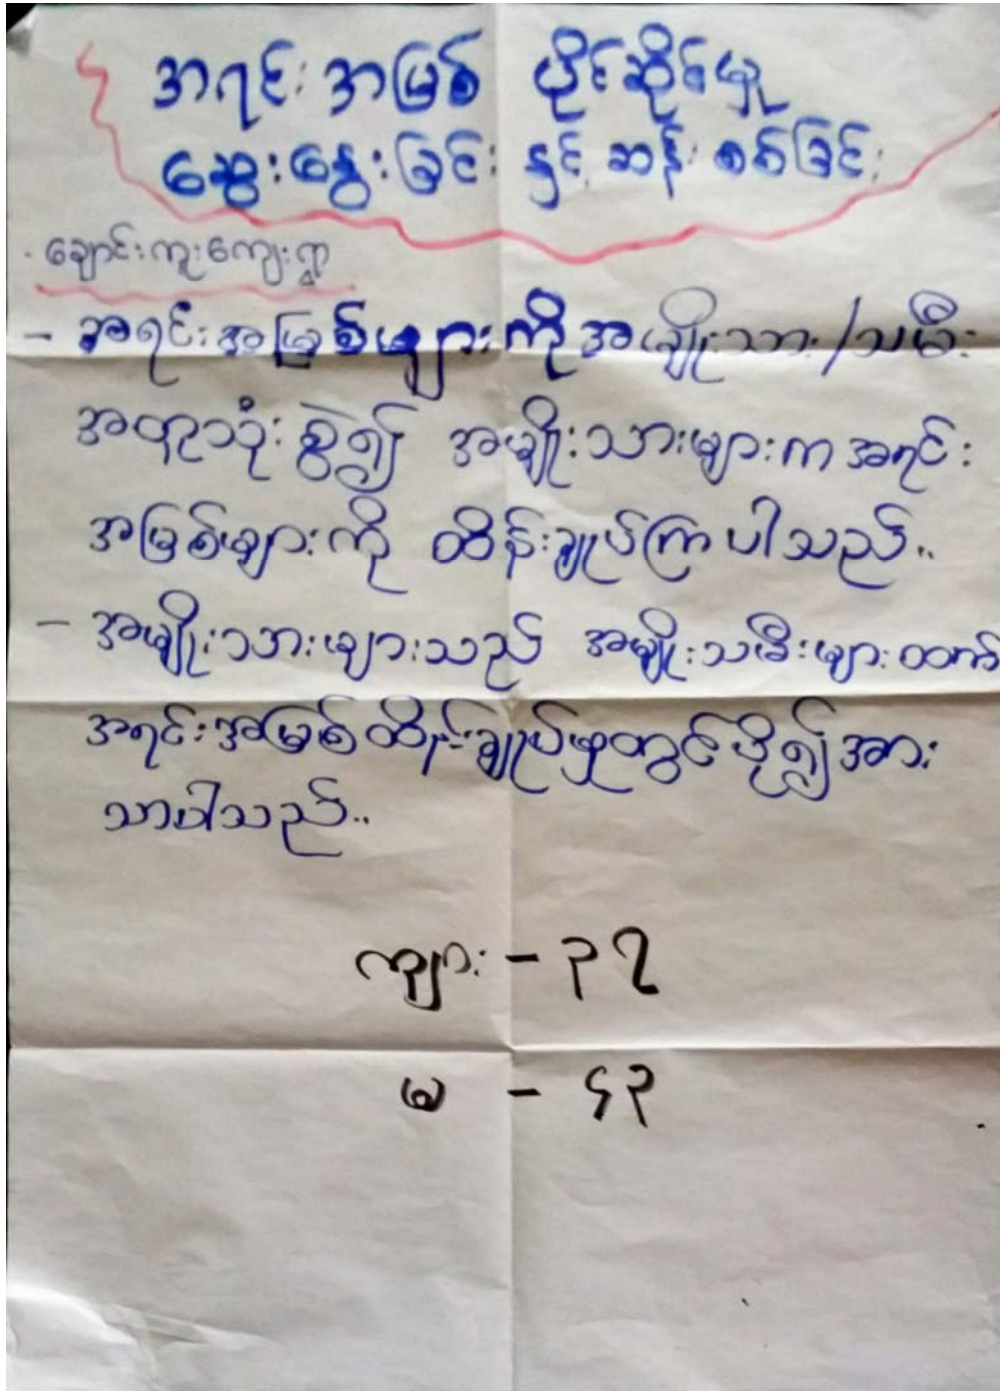 အရင်းအမြစ် ပိုင်ဆိုင်မှု
ဆွေးနွေးခြင်း နှင့် ဆန်းစစ်ခြင်း
ချောင်းကူးကျေးရွာ
- အရင်းအမြစ်များကို အမျိုးသား/သမီး
အတူသုံးစွဲ၍ အမျိုးသားများက အရင်း
အမြစ်များကို ထိန်းချုပ်ကြပါသည်..
- အမျိုးသားများသည် အမျိုးသမီးများထက်
အရင်းအမြစ်ထိန်းချုပ်မှုတွင်ပို၍အား
သာပါသည်..
ကျား - ၃၇
မ - ၄၃